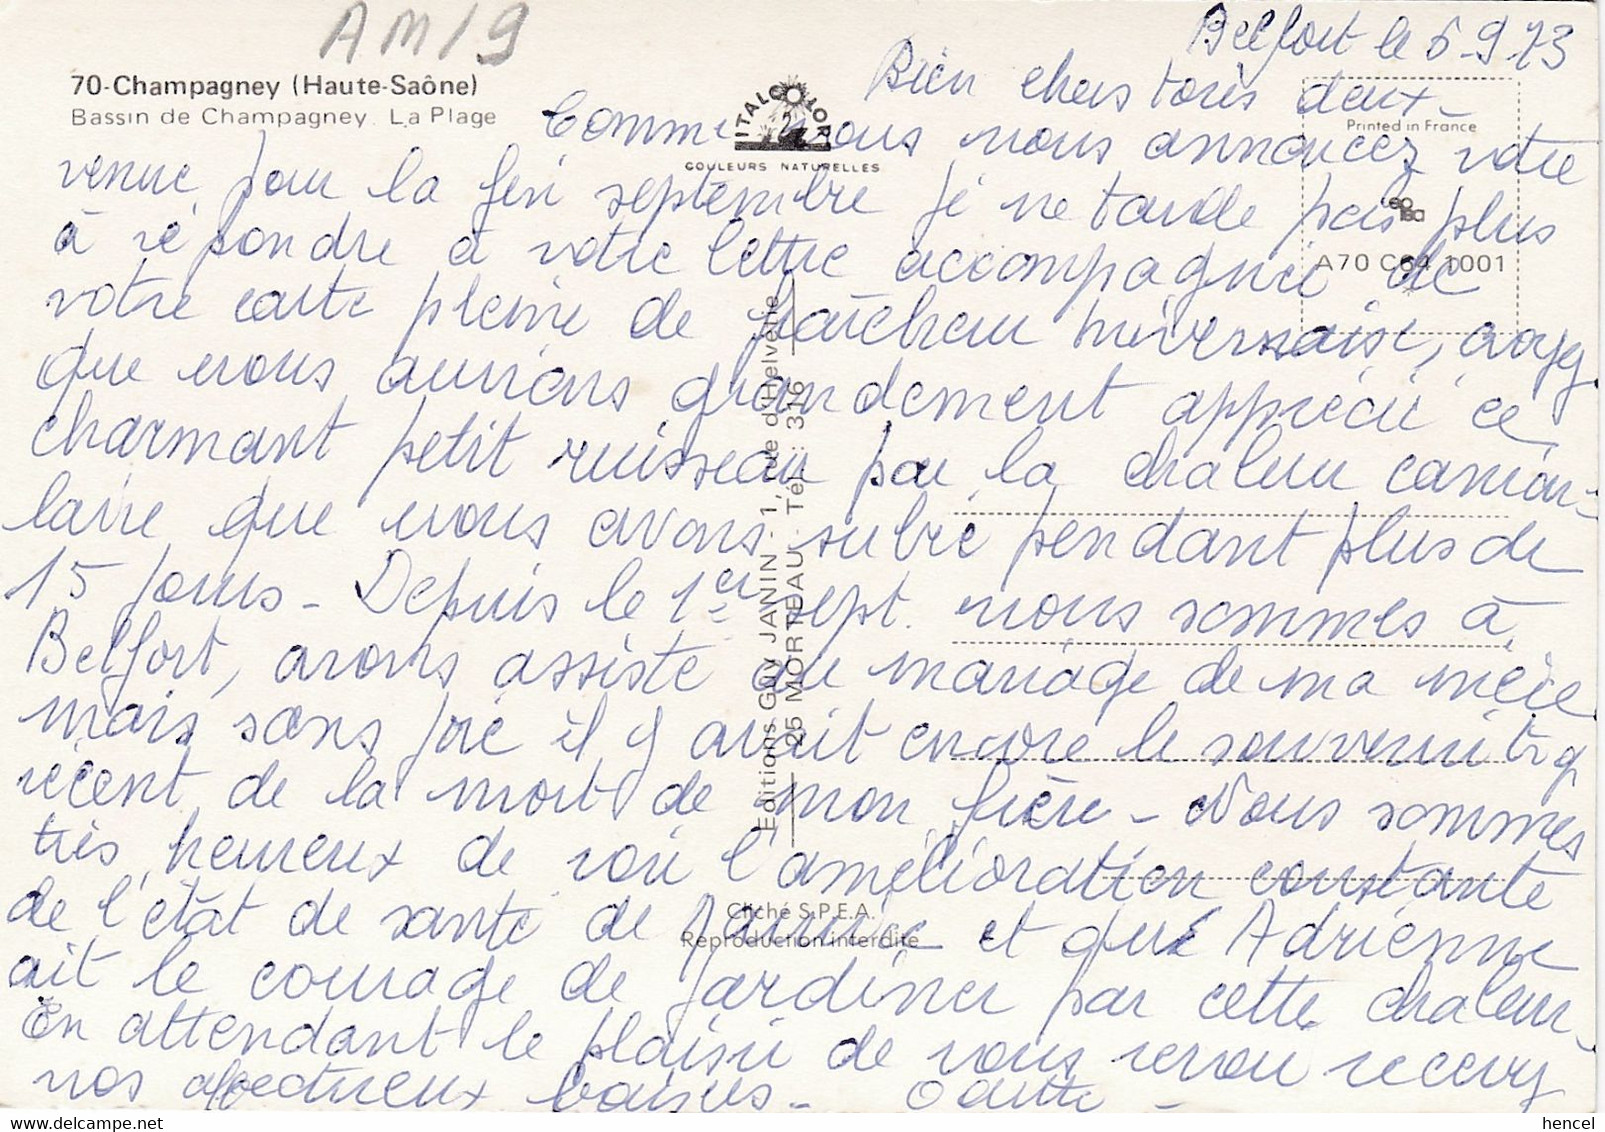 AM/9
Belfort le 5-9-73
70-Champagney (Haute-Saône)
Bassin de Champagney. La Plage
ITALCOLOR
COULEURS NATURELLES
Printed in France
A70 C64 1001
Editions GUY JANIN - 1, rue d'Helvétie
25 MORTEAU - Tél. : 316
Cliché S.P.E.A.
Reproduction interdite
Bien chers tous deux -
Comme vous nous annoncez votre
venue pour la fin septembre je ne tarde pas plus
à répondre à votre lettre accompagnée de
votre carte pleine de fraîcheur nivernaise,
que nous aurions grandement apprécié ce
charmant petit ruisseau par la chaleur canicu-
laire que nous avons subie pendant plus de
15 jours - Depuis le 1er sept. nous sommes à
Belfort, avons assisté au mariage de ma nièce
mais sans joie il y avait encore le souvenir trop
récent de la mort de mon frère - Nous sommes
très heureux de voir l'amélioration constante
de l'état de santé de et que Adrienne
ait le courage de jardiner par cette chaleur -
En attendant le plaisir de vous revoir recevez
nos affectueux baisers -
hencel